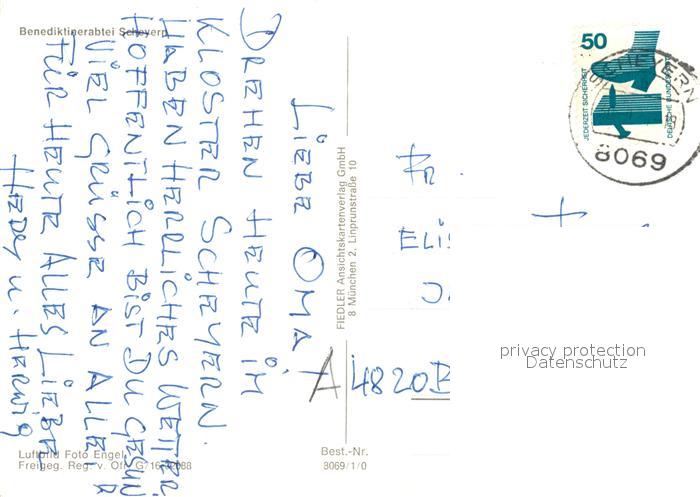 Benediktinerabtei Scheyern
LIEBE OMA!
DREHEN HEUTE IM
KLOSTER SCHEYERN.
HABEN HERRLICHES WETTER.
HOFFENTLICH BIST DU GESUN
VIEL GRÜSSE AN ALLE,
FÜR HEUTE ALLES LIEBE
HEDY U. HERWIG
Luftbild Foto Engel,
Freigeg. Reg. v. Obb. G 716
FIEDLER Ansichtskartenverlag GmbH
8 München 2, Linprunstraße 10
Best.-Nr.
3069/1/0
50
JEDERZEIT SICHERHEIT
DEUTSCHE BUNDESPOST
SCHEYERN
8069
Fr.
ELIS
A 4820 B
privacy protection
Datenschutz